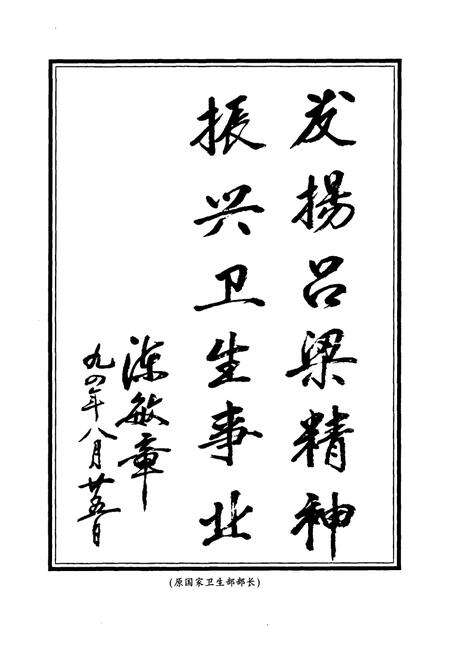 发扬吕梁精神
振兴卫生事业
陈敏章
九四年八月廿五日
(原国家卫生部部长)